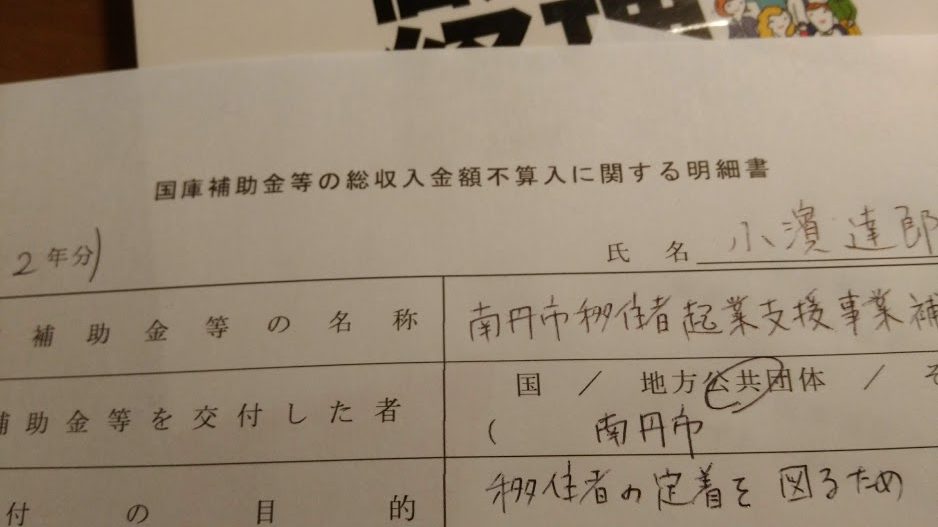 経理
国庫補助金等の総収入金額不算入に関する明細書
2年分)
氏 名 小濱達郎
補助金等の名称
南丹市移住者起業支援事業補
国 / 地方公共団体 / そ
補助金等を交付した者
( 南丹市
付の目的
移住者の定着を図るため